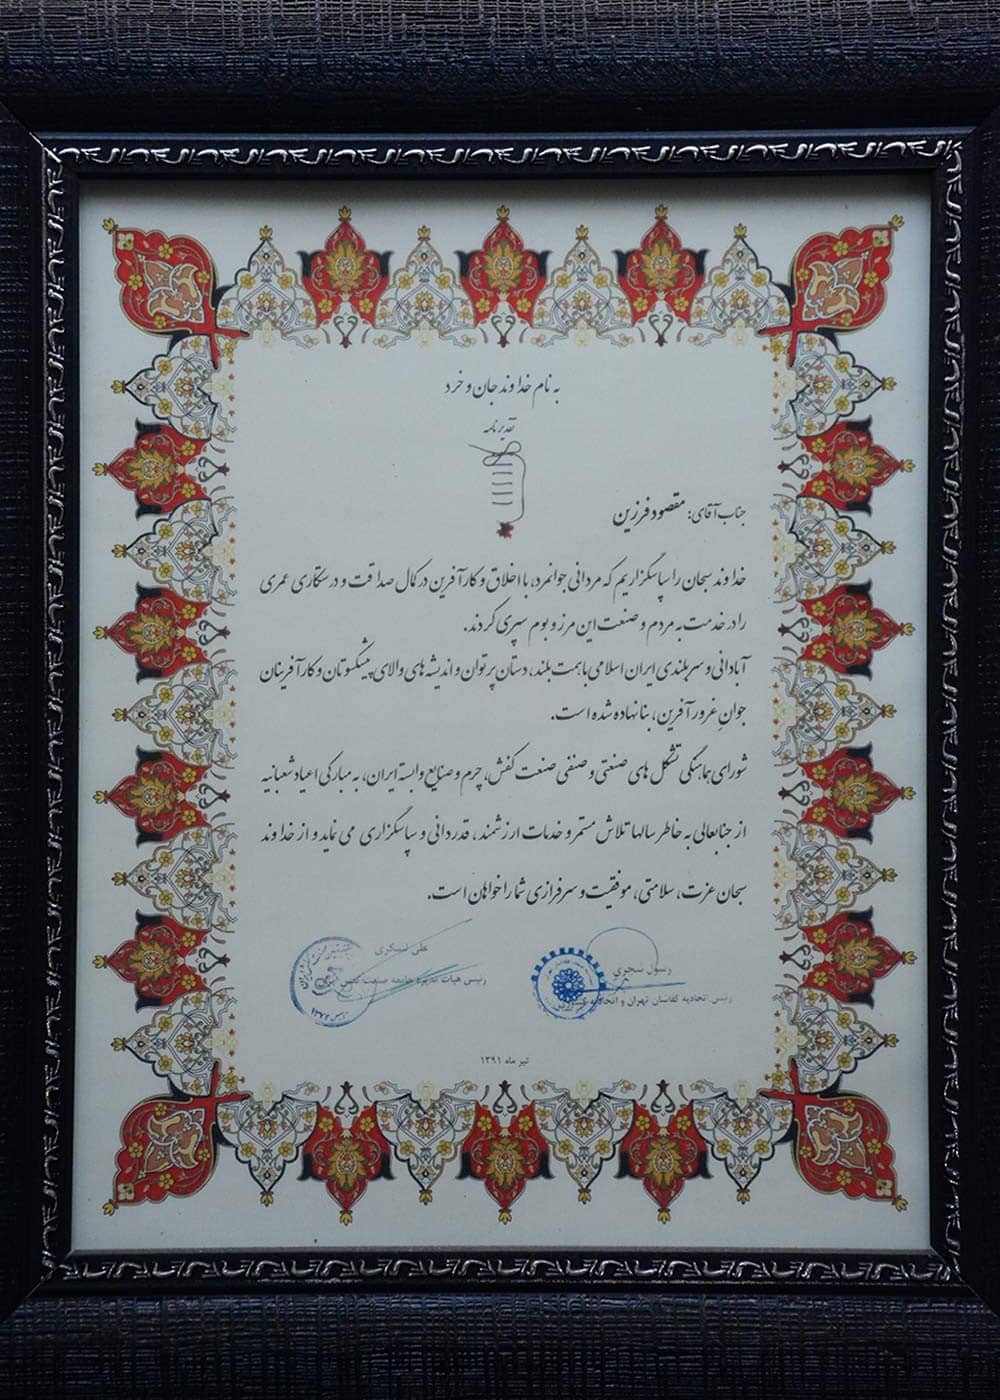 به نام خداوند جان و خرد
تقدیرنامه
جناب آقای: مقصود فرزین
خداوند سبحان را سپاسگزاریم که مردانی جوانمرد، با اخلاق و کارآفرین در کمال صداقت و درستکاری عمری
را در خدمت به مردم و صنعت این مرز و بوم سپری کردند.
آبادانی و سربلندی ایران اسلامی با همت بلند، دستان پرتوان و اندیشه های والای پیشکسوتان و کارآفرینان
جوانِ غرورآفرین، بنا نهاده شده است.
شورای هماهنگی تشکل های صنعتی و صنفی صنعت کفش، چرم و صنایع وابسته ایران، به مبارکی اعیاد شعبانیه
از جنابعالی به خاطر سالها تلاش مستمر و خدمات ارزشمند، قدردانی و سپاسگزاری می نماید و از خداوند
سبحان عزت، سلامتی، موفقیت و سرفرازی شما را خواهان است.
رسول شجری
رییس اتحادیه کفاشان تهران و
علی لشگری
رییس هیات مدیره جامعه صنعت کفش
تیر ماه ۱۳۹۱